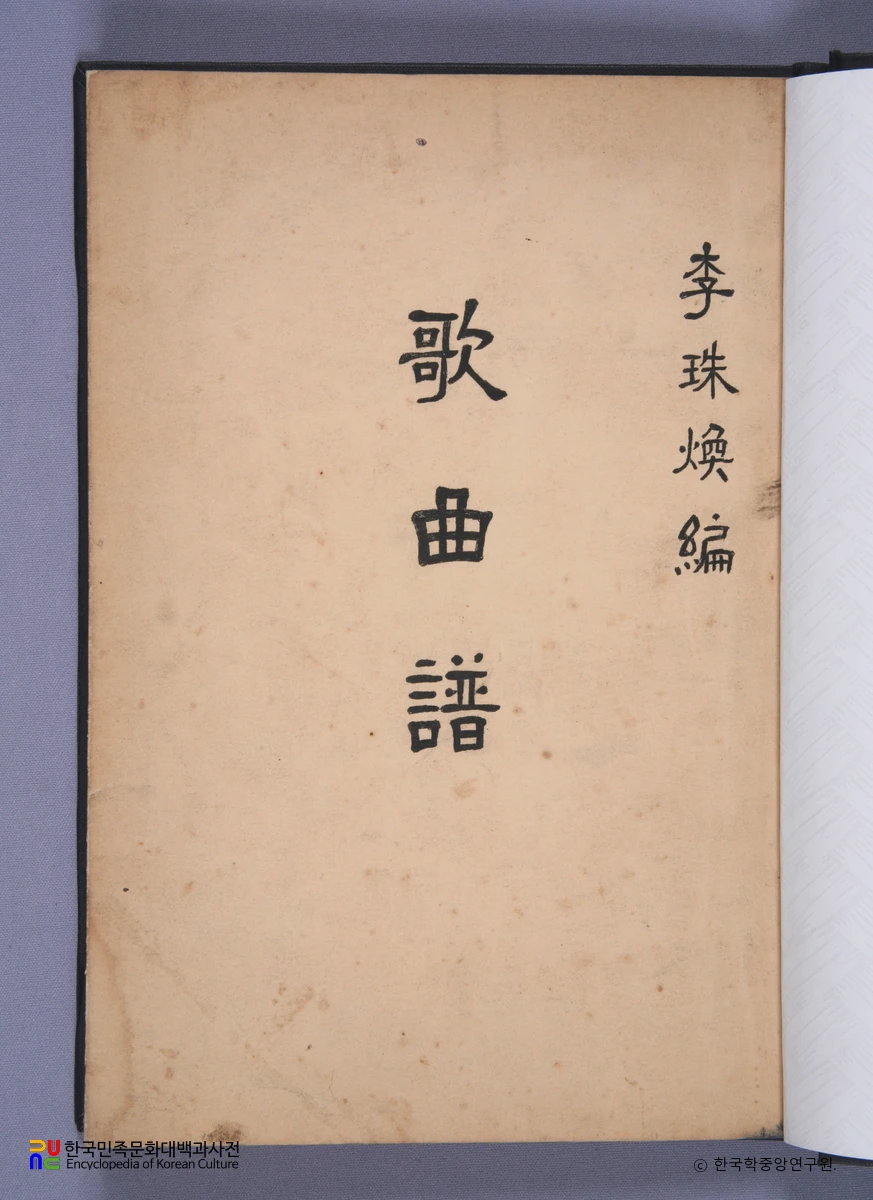 李珠煥編
歌曲譜
한국민족문화대백과사전
Encyclopedia of Korean Culture
© 한국학중앙연구원.